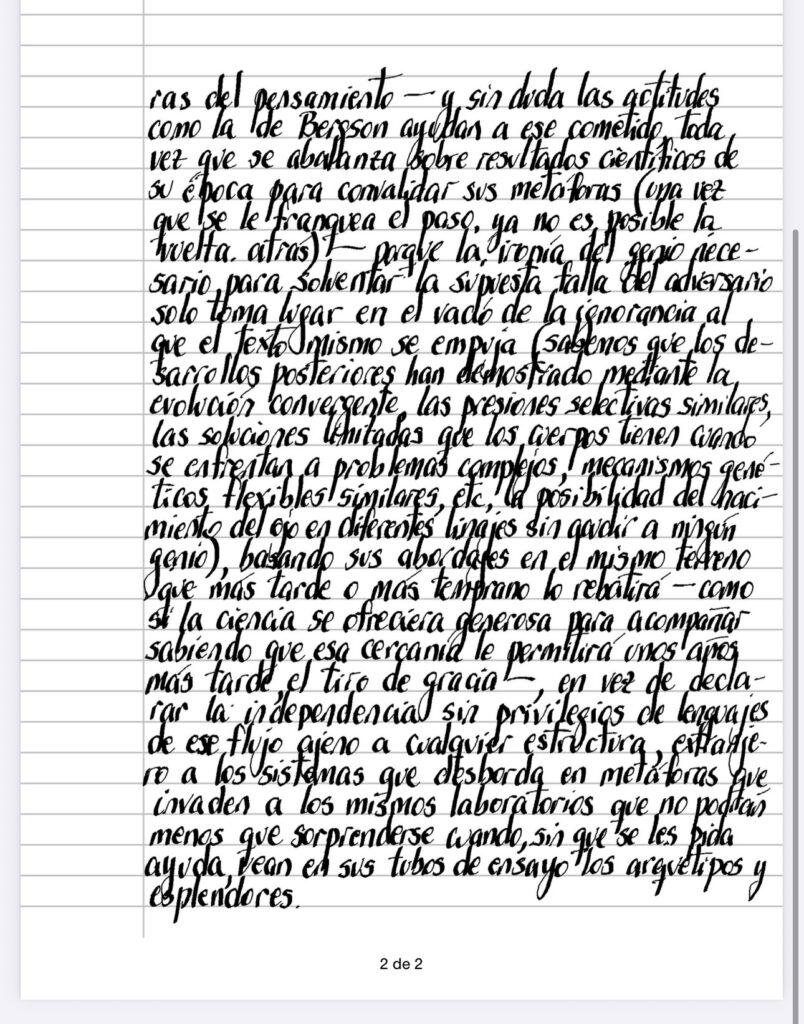 ras del pensamiento — y sin duda las actitudes
como la de Bergson ayudan a ese cometido, toda
vez que se abalanza sobre resultados científicos de
su época para convalidar sus metáforas (una vez
que se le franquea el paso, ya no es posible la
vuelta atrás) — porque la ironía del genio nece-
sario para solventar la supuesta falla del adversario
solo toma lugar en el vacío de la ignorancia al
que el texto mismo se empuja (sabemos que los de-
sarrollos posteriores han demostrado mediante la
evolución convergente, las presiones selectivas similares,
las soluciones limitadas que los cuerpos tienen cuando
se enfrentan a problemas complejos, mecanismos gené-
ticos flexibles similares, etc, la posibilidad del naci-
miento del ojo en diferentes linajes sin acudir a ningún
genio), basando sus abordajes en el mismo terreno
que más tarde o más temprano lo rebatirá — como
si la ciencia se ofreciera generosa para acompañar
sabiendo que esa cercanía le permitirá unos años
más tarde, el tiro de gracia —, en vez de decla-
rar la independencia sin privilegios de lenguajes
de ese flujo ajeno a cualquier estructura, extranje-
ro a los sistemas que desborda en metáforas que
invaden a los mismos laboratorios que no podrán
menos que sorprenderse cuando, sin que se les pida
ayuda, vean en sus tubos de ensayo los arquetipos y
esplendores.
2 de 2